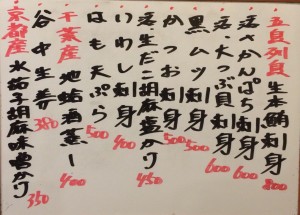 五島列島 生本鮪刺身 800
活、かんぱち刺身 600
活、大つぶ貝刺身 600
黒ムツ刺身 500
かつお刺身 500
活生だこ胡麻塩かり 450
いわし刺身 400
はも天ぷら 500
千葉産 地蛤酒蒸し 400
谷中生姜 380
京都産 水茄子胡麻味噌かり 350